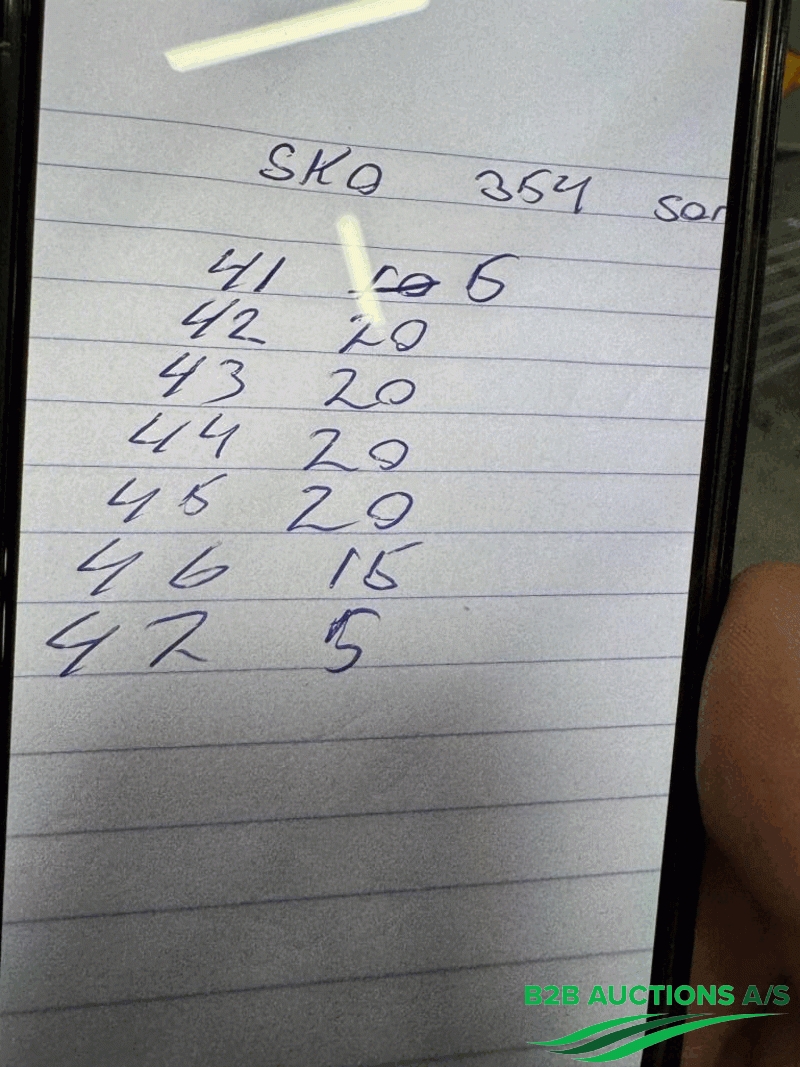 SKO 354 sor
41 10 6
42 20
43 20
44 20
45 20
46 15
47 5
B2B AUCTIONS A/S